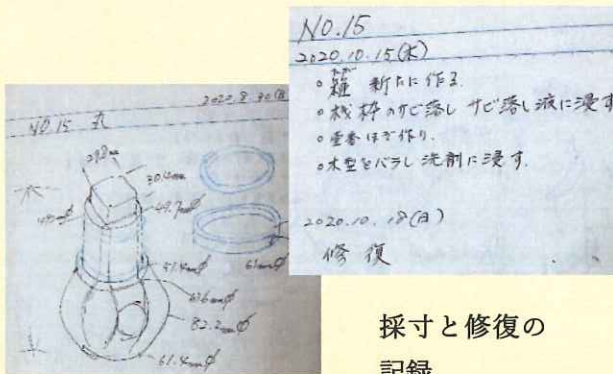 NO.15
2020.10.15(木)
○箍 新たに作る.
サビ落し サビ落し液に浸す
○木型をバラし 洗剤に浸す.
2020.10.18(日)
修復
2020.8.30(日)
NO.15 丸
30.4mm
49.7mmφ
51.4mmφ
61mmφ
61.6mmφ
82.2mmφ
61.4mmφ
採寸と修復の
記録